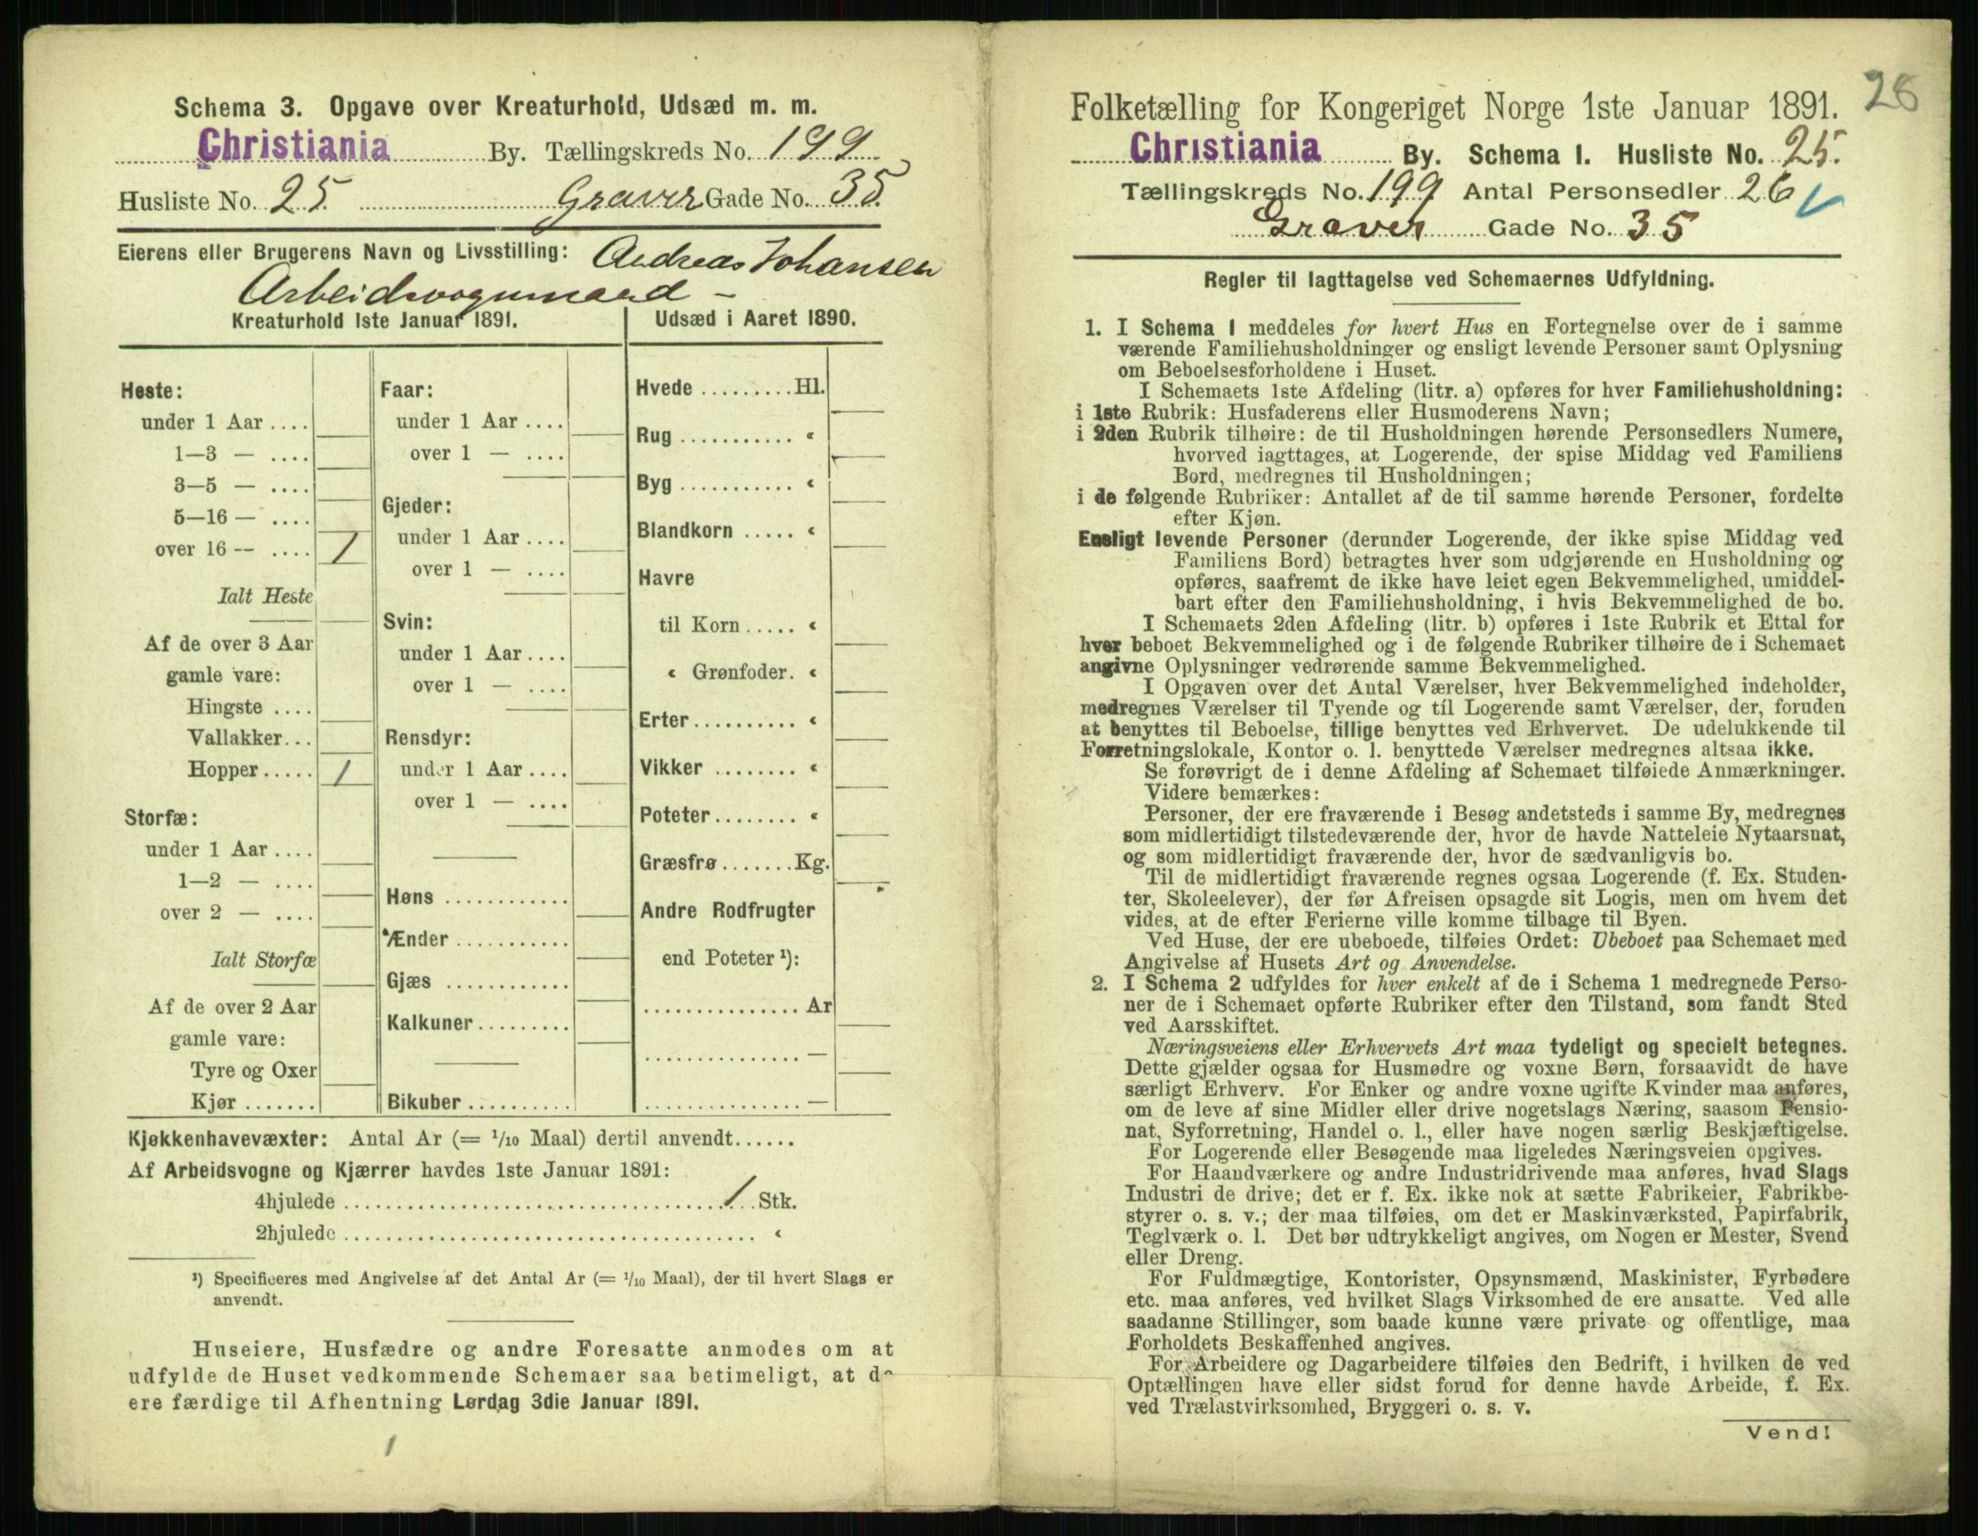 Schema 3. Opgave over Kreaturhold, Udsæd m. m.
Christiania By. Tællingskreds No. 199
Husliste No. 25. Graver Gade No. 35.
Eierens eller Brugerens Navn og Livsstilling: Andreas Johansen
Arbeidsvognmand –
Kreaturhold 1ste Januar 1891.
Heste:
under 1 Aar ....
1—3 — ....
3—5 — ....
5—16 — ....
over 16 — .... 1
Ialt Heste
Af de over 3 Aar
gamle vare:
Hingste ....
Vallakker...
Hopper..... 1
Storfæ:
under 1 Aar ....
1—2 — ....
over 2 — ....
Ialt Storfæ
Af de over 2 Aar
gamle vare:
Tyre og Oxer
Kjør .......
Faar:
under 1 Aar ....
over 1 — ....
Gjeder:
under 1 Aar ....
over 1 — ....
Svin:
under 1 Aar ....
over 1 — ....
Rensdyr:
under 1 Aar ....
over 1 — ....
Høns ............
Ænder ...........
Gjæs ............
Kalkuner.........
Bikuber ..........
Udsæd i Aaret 1890.
Hvede ......... Hl.
Rug ........... «
Byg ........... «
Blandkorn ..... «
Havre
til Korn ..... «
« Grønfoder. «
Erter.......... «
Vikker ........ «
Poteter........ «
Græsfrø ....... Kg.
Andre Rodfrugter
end Poteter ¹):
............... Ar
............... —
............... —
Kjøkkenhavevæxter: Antal Ar (= 1/10 Maal) dertil anvendt......
Af Arbeidsvogne og Kjærrer havdes 1ste Januar 1891:
4hjulede .................................... 1 Stk.
2hjulede ....................................... «
¹) Specificeres med Angivelse af det Antal Ar (= 1/10 Maal), der til hvert Slags er
anvendt.
Huseiere, Husfædre og andre Foresatte anmodes om at
udfylde de Huset vedkommende Schemaer saa betimeligt, at de
ere færdige til Afhentning Lørdag 3die Januar 1891.
28
Folketælling for Kongeriget Norge 1ste Januar 1891.
Christiania By. Schema 1. Husliste No. 25.
Tællingskreds No. 199 Antal Personsedler 26
Graver Gade No. 35
Regler til Iagttagelse ved Schemaernes Udfyldning.
1. I Schema 1 meddeles for hvert Hus en Fortegnelse over de i samme
værende Familiehusholdninger og ensligt levende Personer samt Oplysning
om Beboelsesforholdene i Huset.
I Schemaets 1ste Afdeling (litr. a) opføres for hver Familiehusholdning:
i 1ste Rubrik: Husfaderens eller Husmoderens Navn;
i 2den Rubrik tilhøire: de til Husholdningen hørende Personsedlers Numere,
hvorved iagttages, at Logerende, der spise Middag ved Familiens
Bord, medregnes til Husholdningen;
i de følgende Rubriker: Antallet af de til samme hørende Personer, fordelte
efter Kjøn.
Ensligt levende Personer (derunder Logerende, der ikke spise Middag ved
Familiens Bord) betragtes hver som udgjørende en Husholdning og
opføres, saafremt de ikke have leiet egen Bekvemmelighed, umiddel-
bart efter den Familiehusholdning, i hvis Bekvemmelighed de bo.
I Schemaets 2den Afdeling (litr. b) opføres i 1ste Rubrik et Ettal for
hver beboet Bekvemmelighed og i de følgende Rubriker tilhøire de i Schemaet
angivne Oplysninger vedrørende samme Bekvemmelighed.
I Opgaven over det Antal Værelser, hver Bekvemmelighed indeholder,
medregnes Værelser til Tyende og til Logerende samt Værelser, der, foruden
at benyttes til Beboelse, tillige benyttes ved Erhvervet. De udelukkende til
Forretningslokale, Kontor o. l. benyttede Værelser medregnes altsaa ikke.
Se forøvrigt de i denne Afdeling af Schemaet tilføiede Anmærkninger.
Videre bemærkes:
Personer, der ere fraværende i Besøg andetsteds i samme By, medregnes
som midlertidigt tilstedeværende der, hvor de havde Natteleie Nytaarsnat,
og som midlertidigt fraværende der, hvor de sædvanligvis bo.
Til de midlertidigt fraværende regnes ogsaa Logerende (f. Ex. Studen-
ter, Skoleelever), der før Afreisen opsagde sit Logis, men om hvem det
vides, at de efter Ferierne ville komme tilbage til Byen.
Ved Huse, der ere ubeboede, tilføies Ordet: Ubeboet paa Schemaet med
Angivelse af Husets Art og Anvendelse.
2. I Schema 2 udfyldes for hver enkelt af de i Schema 1 medregnede Perso-
ner de i Schemaet opførte Rubriker efter den Tilstand, som fandt Sted
ved Aarsskiftet.
Næringsveiens eller Erhvervets Art maa tydeligt og specielt betegnes.
Dette gjælder ogsaa for Husmødre og voxne Børn, forsaavidt de have
særligt Erhverv. For Enker og andre voxne ugifte Kvinder maa anføres,
om de leve af sine Midler eller drive nogetslags Næring, saasom Pensio-
nat, Syforretning, Handel o. l., eller have nogen særlig Beskjæftigelse.
For Logerende eller Besøgende maa ligeledes Næringsveien opgives.
For Haandværkere og andre Industridrivende maa anføres, hvad Slags
Industri de drive; det er f. Ex. ikke nok at sætte Fabrikeier, Fabrikbe-
styrer o. s. v.; der maa tilføies, om det er Maskinværksted, Papirfabrik,
Teglværk o. l. Det bør udtrykkeligt angives, om Nogen er Mester, Svend
eller Dreng.
For Fuldmægtige, Kontorister, Opsynsmænd, Maskinister, Fyrbødere
etc. maa anføres, ved hvilket Slags Virksomhed de ere ansatte. Ved alle
saadanne Stillinger, som baade kunne være private og offentlige, maa
Forholdets Beskaffenhed angives.
For Arbeidere og Dagarbeidere tilføies den Bedrift, i hvilken de ved
Optællingen have eller sidst forud for denne havde Arbeide, f. Ex.
ved Trælastvirksomhed, Bryggeri o. s. v.
Vend!